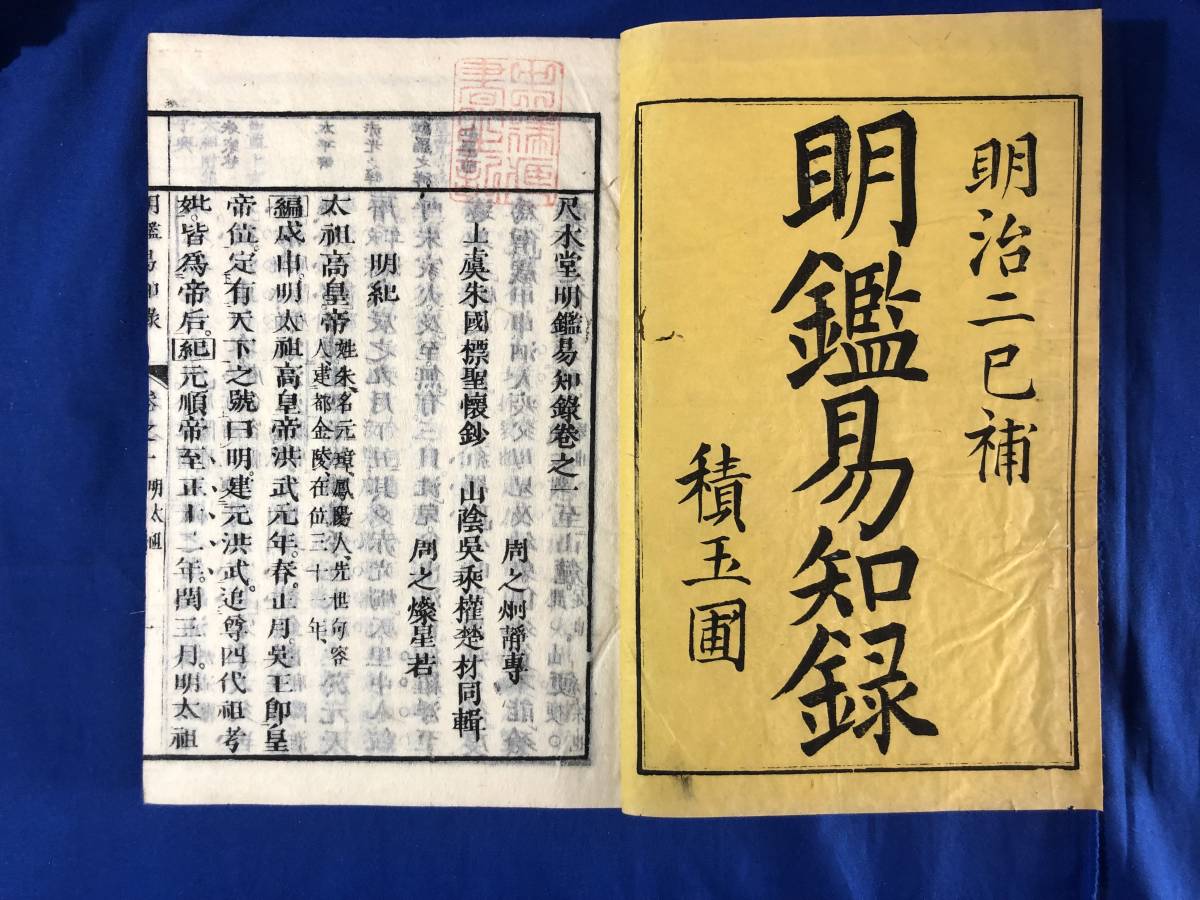 明治二巳補
明鑑易知録
積玉圃
尺木堂明鑑易知錄卷之一
周之炯靜專
上虞朱國標聖懷鈔 山陰吳乘權楚材同輯
周之燦星若
明紀
太祖高皇帝
姓朱、名元璋、鳳陽人、先世句容
人、建都金陵、在位三十一年、
編戊申。明太祖高皇帝洪武元年。春。正月。吳王卽皇
帝位。定有天下之號曰明。建元洪武。追尊四代祖考
妣。皆爲帝后。紀元順帝至正十二年。閏正月。明太祖
明鑑易知錄 卷之一 明太祖 一